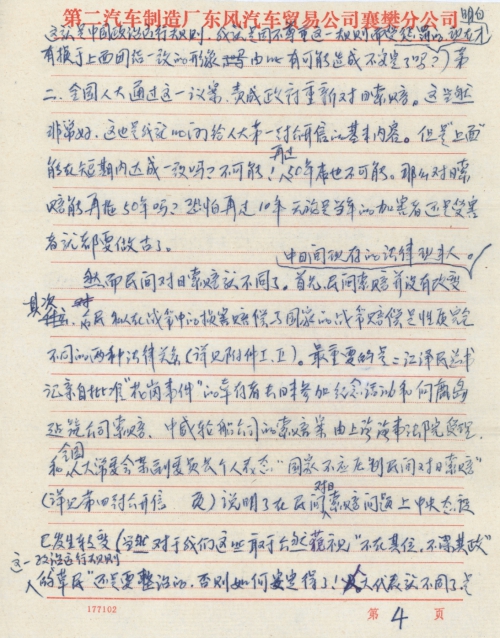 第二汽车制造厂东风汽车贸易公司襄樊分公司 明白
这就是中国政治运行规则，我是因不尊重这一规则而受惩罚的，现在才
有损于上面团结一致的形象 由此有可能造成不安定了吗？）第
二、全国人大通过这一议案，责成政府重新对日索赔。这当然
非常好，这也是 给人大第一封公开信的基本内容。但是"上面"
能在短期内达成一致吗？不可能！再过50年 也不可能。那么对日索
赔能再拖50年吗？恐怕再过10年无论是当年的加害者还是受害
者 都要做古了。
中日间现存的法律
然而民间对日索赔就不同了。首先，民间索赔并没有改变
其次 民间在战争中的损害赔偿与国家的战争赔偿是性质完全
不同的两种法律关系（详见附件工、正）。最重要的是：江泽民总书
记亲自批准"花岗事件"的幸存者去日本参加纪念活动和向鹿岛
建筑公司索赔、中威轮船公司的索赔案由上海海事法院受理，
和全国人大常委会某副委员长个人表态"国家不应压制民间对日索赔"
（详见第四封公开信 页）说明了在民间对日索赔问题上中央态度
已发生转变（当然对于我们这些敢于公然藐视"不在其位，不谋其政"
这一政治运行规则
的草民"还是要整治的，否则如何安定得了！ 人大代表就不同了，是
人
177102
第 4 页